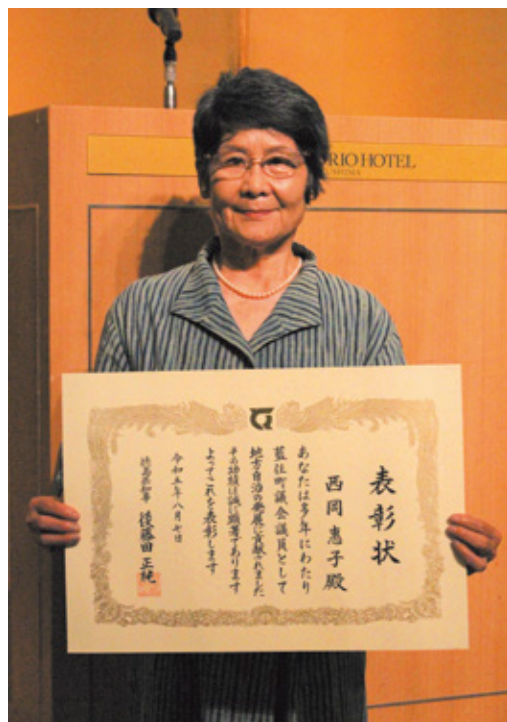 RIO HOTEL
表彰状
西岡惠子殿
あなたは多年にわたり
藍住町議会議員として
地方自治の発展に貢献されました
その功績は誠に顕著であります
よってこれを表彰します
令和五年八月七日
徳島県知事 後藤田正純